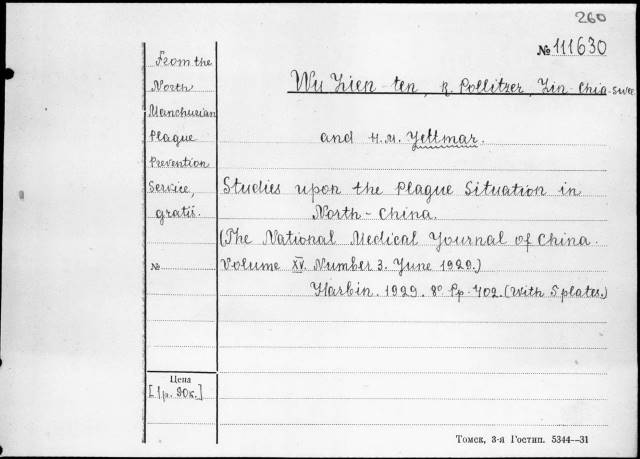 260
№ 111630
From the
North
Manchurian
Plague
Prevention
Service,
gratis.
Wu Lien-ten, R. Pollitzer, Lin-Chia-Swee
and H.M. Jettmar.
Studies upon the Plague Situation in
North-China.
(The National Medical Journal of China.
Volume XV. Number 3. June 1929.)
№
Harbin. 1929. 8° Pp. 402. (With 5 plates.)
Цена
[1р. 90к.]
Томск, 3-я Гостип. 5344—31